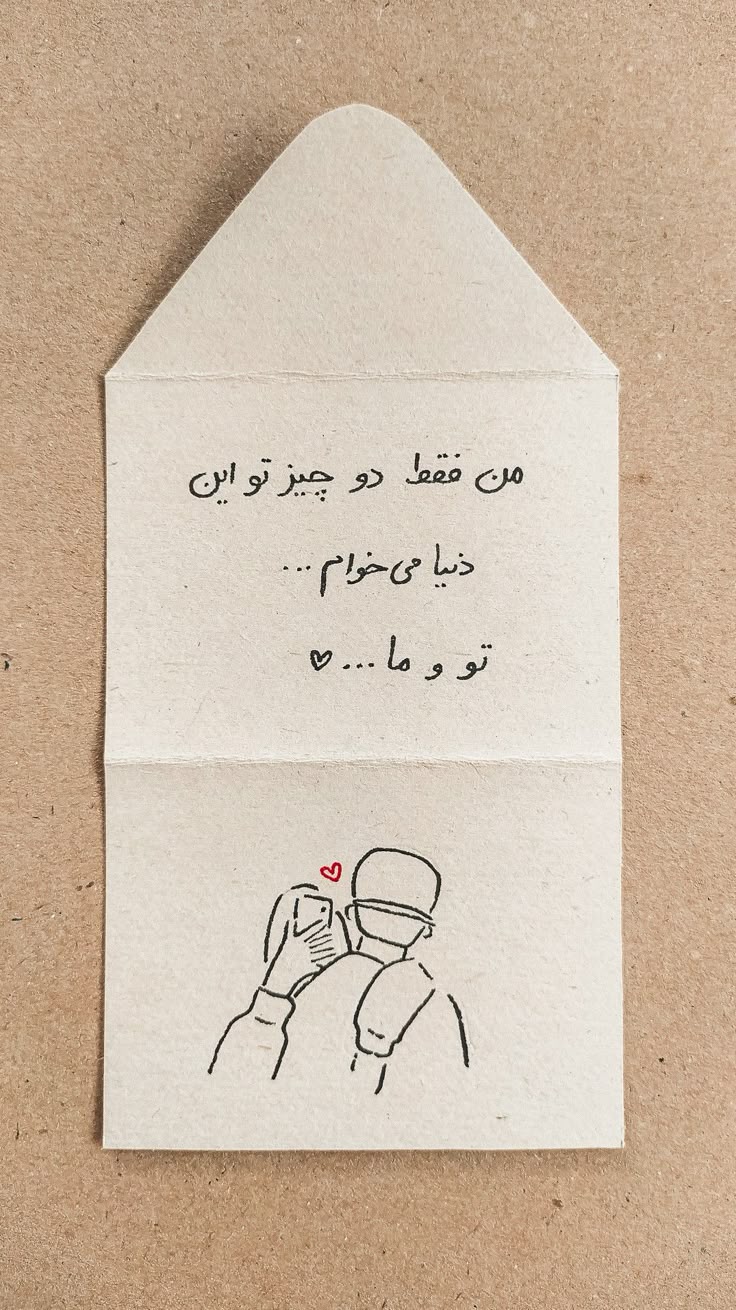 من فقط دو چیز تو این
دنیا می‌خوام...
تو و ما...♥